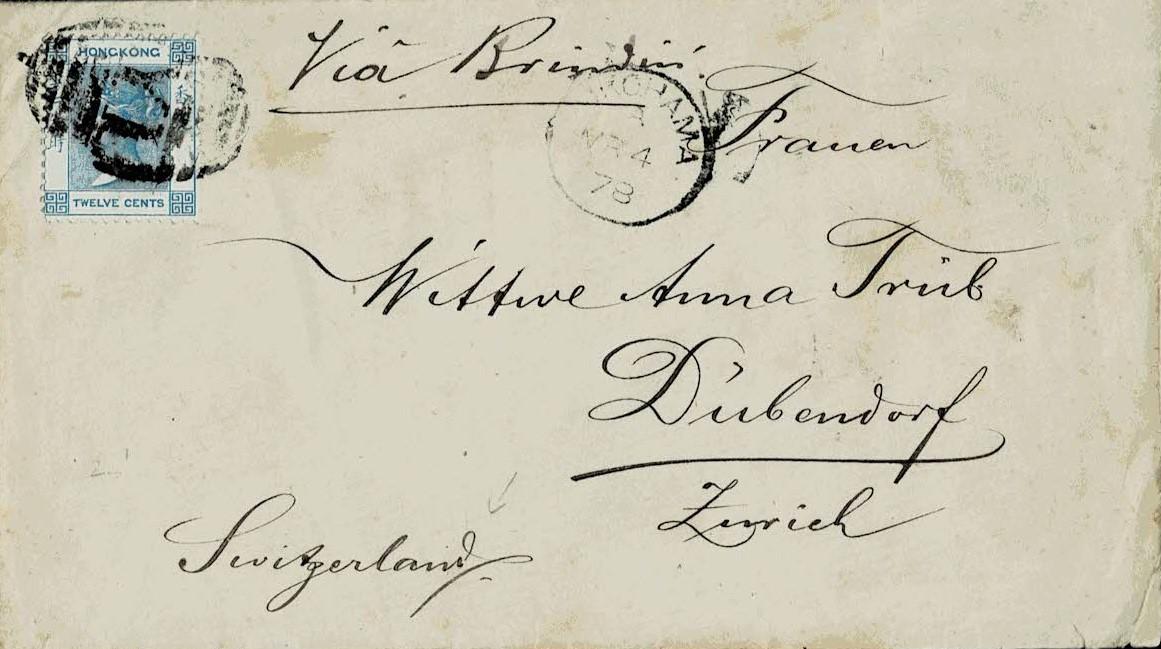 HONGKONG
TWELVE CENTS
Viā Brindisi.
KOHAMA
4
78
Frauen
Wittwe Anna Trüb
Dübendorf
Zurich
Switzerland